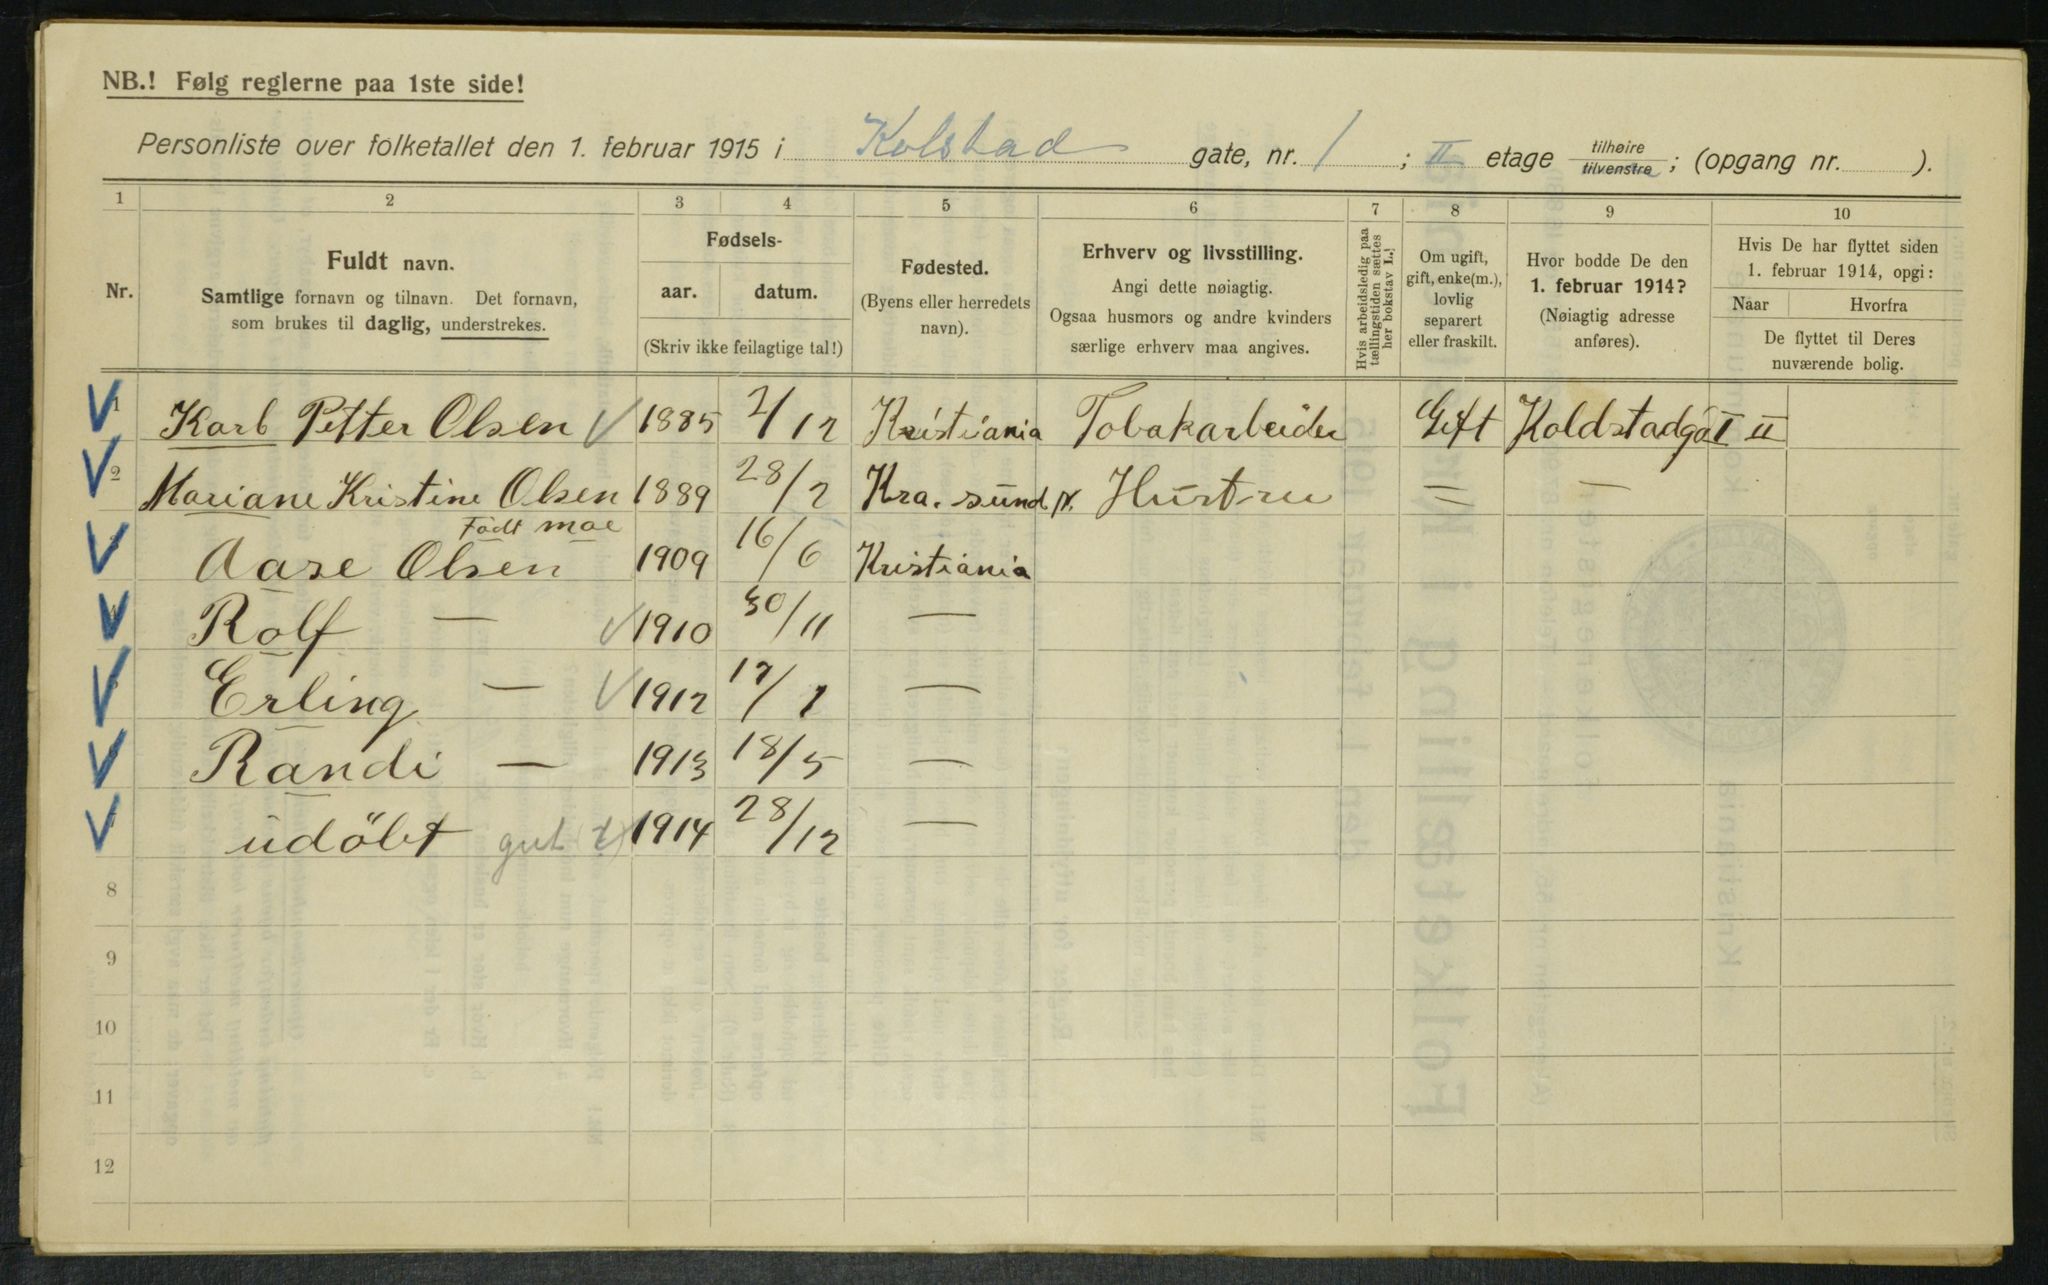 NB.! Følg reglerne paa 1ste side!
Personliste over folketallet den 1. februar 1915 i Kolstad gate, nr. 1 ; II etage tilhøire / tilvenstre ; (opgang nr. ).
1 2 3 4 5 6 7 8 9 10
Nr.
Fuldt navn.
Samtlige fornavn og tilnavn. Det fornavn,
som brukes til daglig, understrekes.
Fødsels-
aar. datum.
(Skriv ikke feilagtige tal!)
Fødested.
(Byens eller herredets
navn).
Erhverv og livsstilling.
Angi dette nøiagtig.
Ogsaa husmors og andre kvinders
særlige erhverv maa angives.
Hvis arbeidsledig paa
tællingstiden sættes
her bokstav L.!
Om ugift,
gift, enke(m.),
lovlig
separert
eller fraskilt.
Hvor bodde De den
1. februar 1914?
(Nøiagtig adresse
anføres).
Hvis De har flyttet siden
1. februar 1914, opgi:
Naar Hvorfra
De flyttet til Deres
nuværende bolig.
1 Karl Petter Olsen 1885 2/12 Kristiania Tobakarbeider Gift Koldstadga I II
2 Mariane Kristine Olsen 1889 28/2 Kra. sund. N. Hustru = —
Født moe
3 Aase Olsen 1909 16/6 Kristiania
4 Rolf — 1910 30/11 —
5 Erling — 1912 17/1 —
6 Randi — 1913 18/5 —
7 udöbt gut 1914 28/12 —
8
9
10
11
12